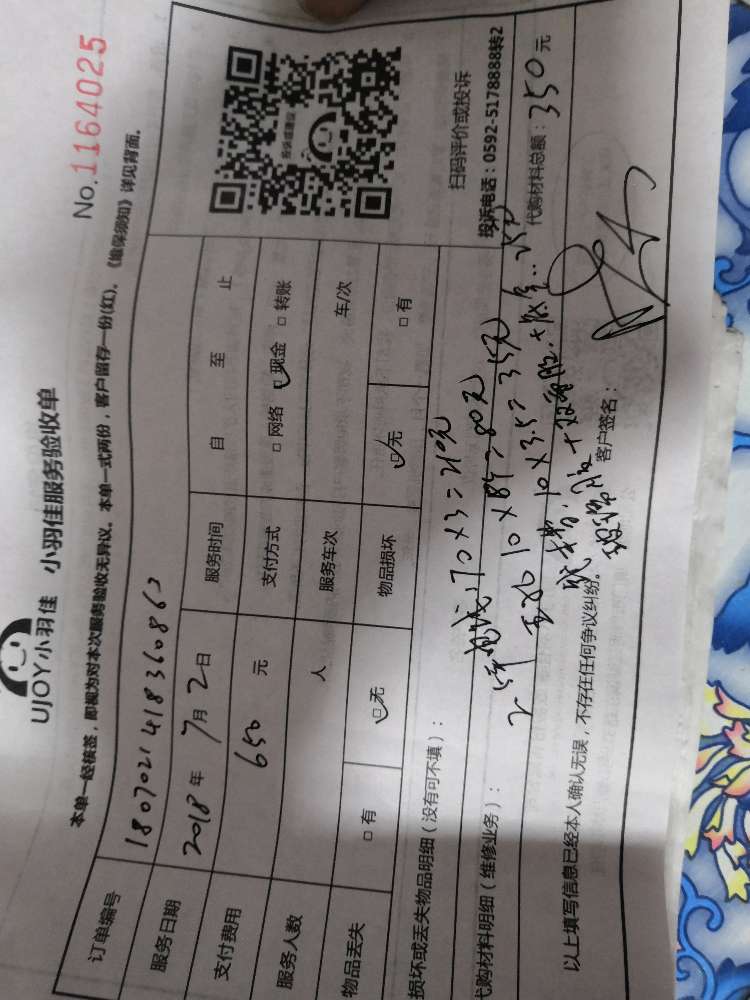 No.1164025
UJOY小羽佳 小羽佳服务验收单
本单一经核签，即视为对本次服务验收无异议。本单一式两份，客户留存一份(红)。《维保须知》详见背面。
订单编号 180702141836086
服务日期 2018年7月2日 服务时间 自 至 止
支付费用 650 元 支付方式 □网络 □现金 □转账
服务人数 人 服务车次 车/次
物品丢失 □有 □无 物品损坏 □无 □有
投诉或建议
扫码评价或投诉
投诉电话：0592-5178888转2
损坏或丢失物品明细（没有可不填）：
70×3=210元
代购材料明细（维修业务）：
10×8=80元
10×3.5=35元
代购材料总额：350元
以上填写信息已经本人确认无误，不存在任何争议纠纷。
客户签名：